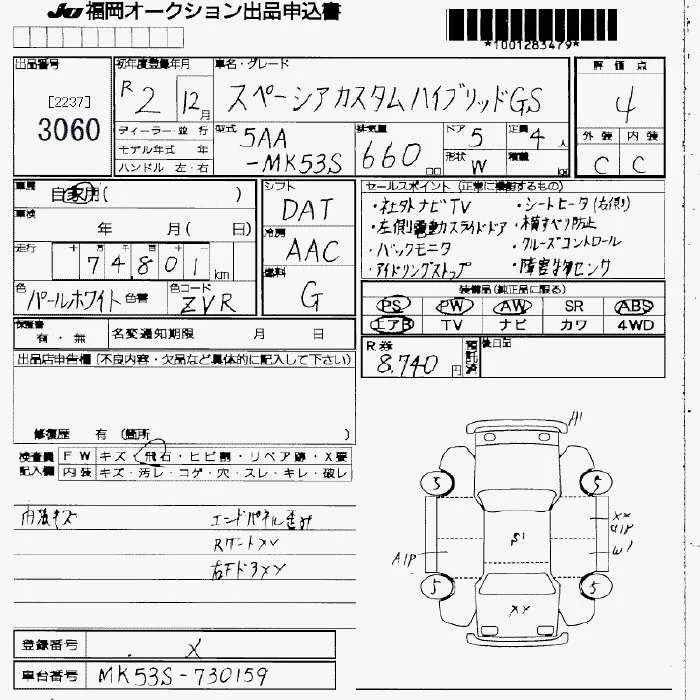 JU 福岡オークション出品申込書
*1001283479*
出品番号
[2237]
3060
初年度登録年月
R 2 12月
車名・グレード
スペーシアカスタムハイブリッドGS
評価点
4
外装 内装
C C
ディーラー・並行
モデル年式 年
ハンドル 左・右
型式
5AA
-MK53S
排気量
660
ドア
5
形状
W
定員
4 人
積載
車歴
自家用( )
車検
年 月( 日)
走行
74,801 km
色
パールホワイト 色替
色コード
ZVR
シフト
DAT
冷房
AAC
燃料
G
セールスポイント (正常に機能するもの)
・社外ナビTV ・シートヒータ(右側)
・左側電動スライドドア ・横すべり防止
・バックモニタ ・クルーズコントロール
・アイドリングストップ ・障害物センサ
装備品(純正品に限る)
PS PW AW SR ABS
エアB TV ナビ カワ 4WD
有・無
名変通知期限 月 日
R券
8,740 円
預託済
後日品
出品店申告欄 (不良内容・欠品など具体的に記入して下さい)
修復歴 有 (箇所 )
検査員 FW キズ・飛石・ヒビ割・リペア跡・X要
記入欄 内装 キズ・汚レ・コゲ・穴・スレ・キレ・破レ
内張キズ
エンドパネル歪み
A1
5
5
XX
S1
A1P
W1
5
5
XX
登録番号 X
車台番号 MK53S-730159